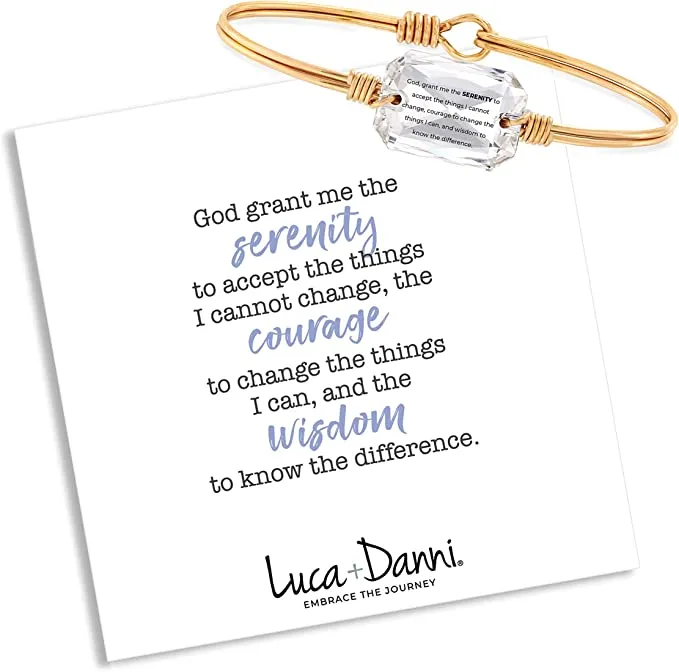 God, grant me the SERENITY to
accept the things I cannot
change, courage to change the
things I can, and wisdom to
know the difference.
God grant me the
serenity
to accept the things
I cannot change, the
courage
to change the things
I can, and the
wisdom
to know the difference.
Luca+Danni®
EMBRACE THE JOURNEY